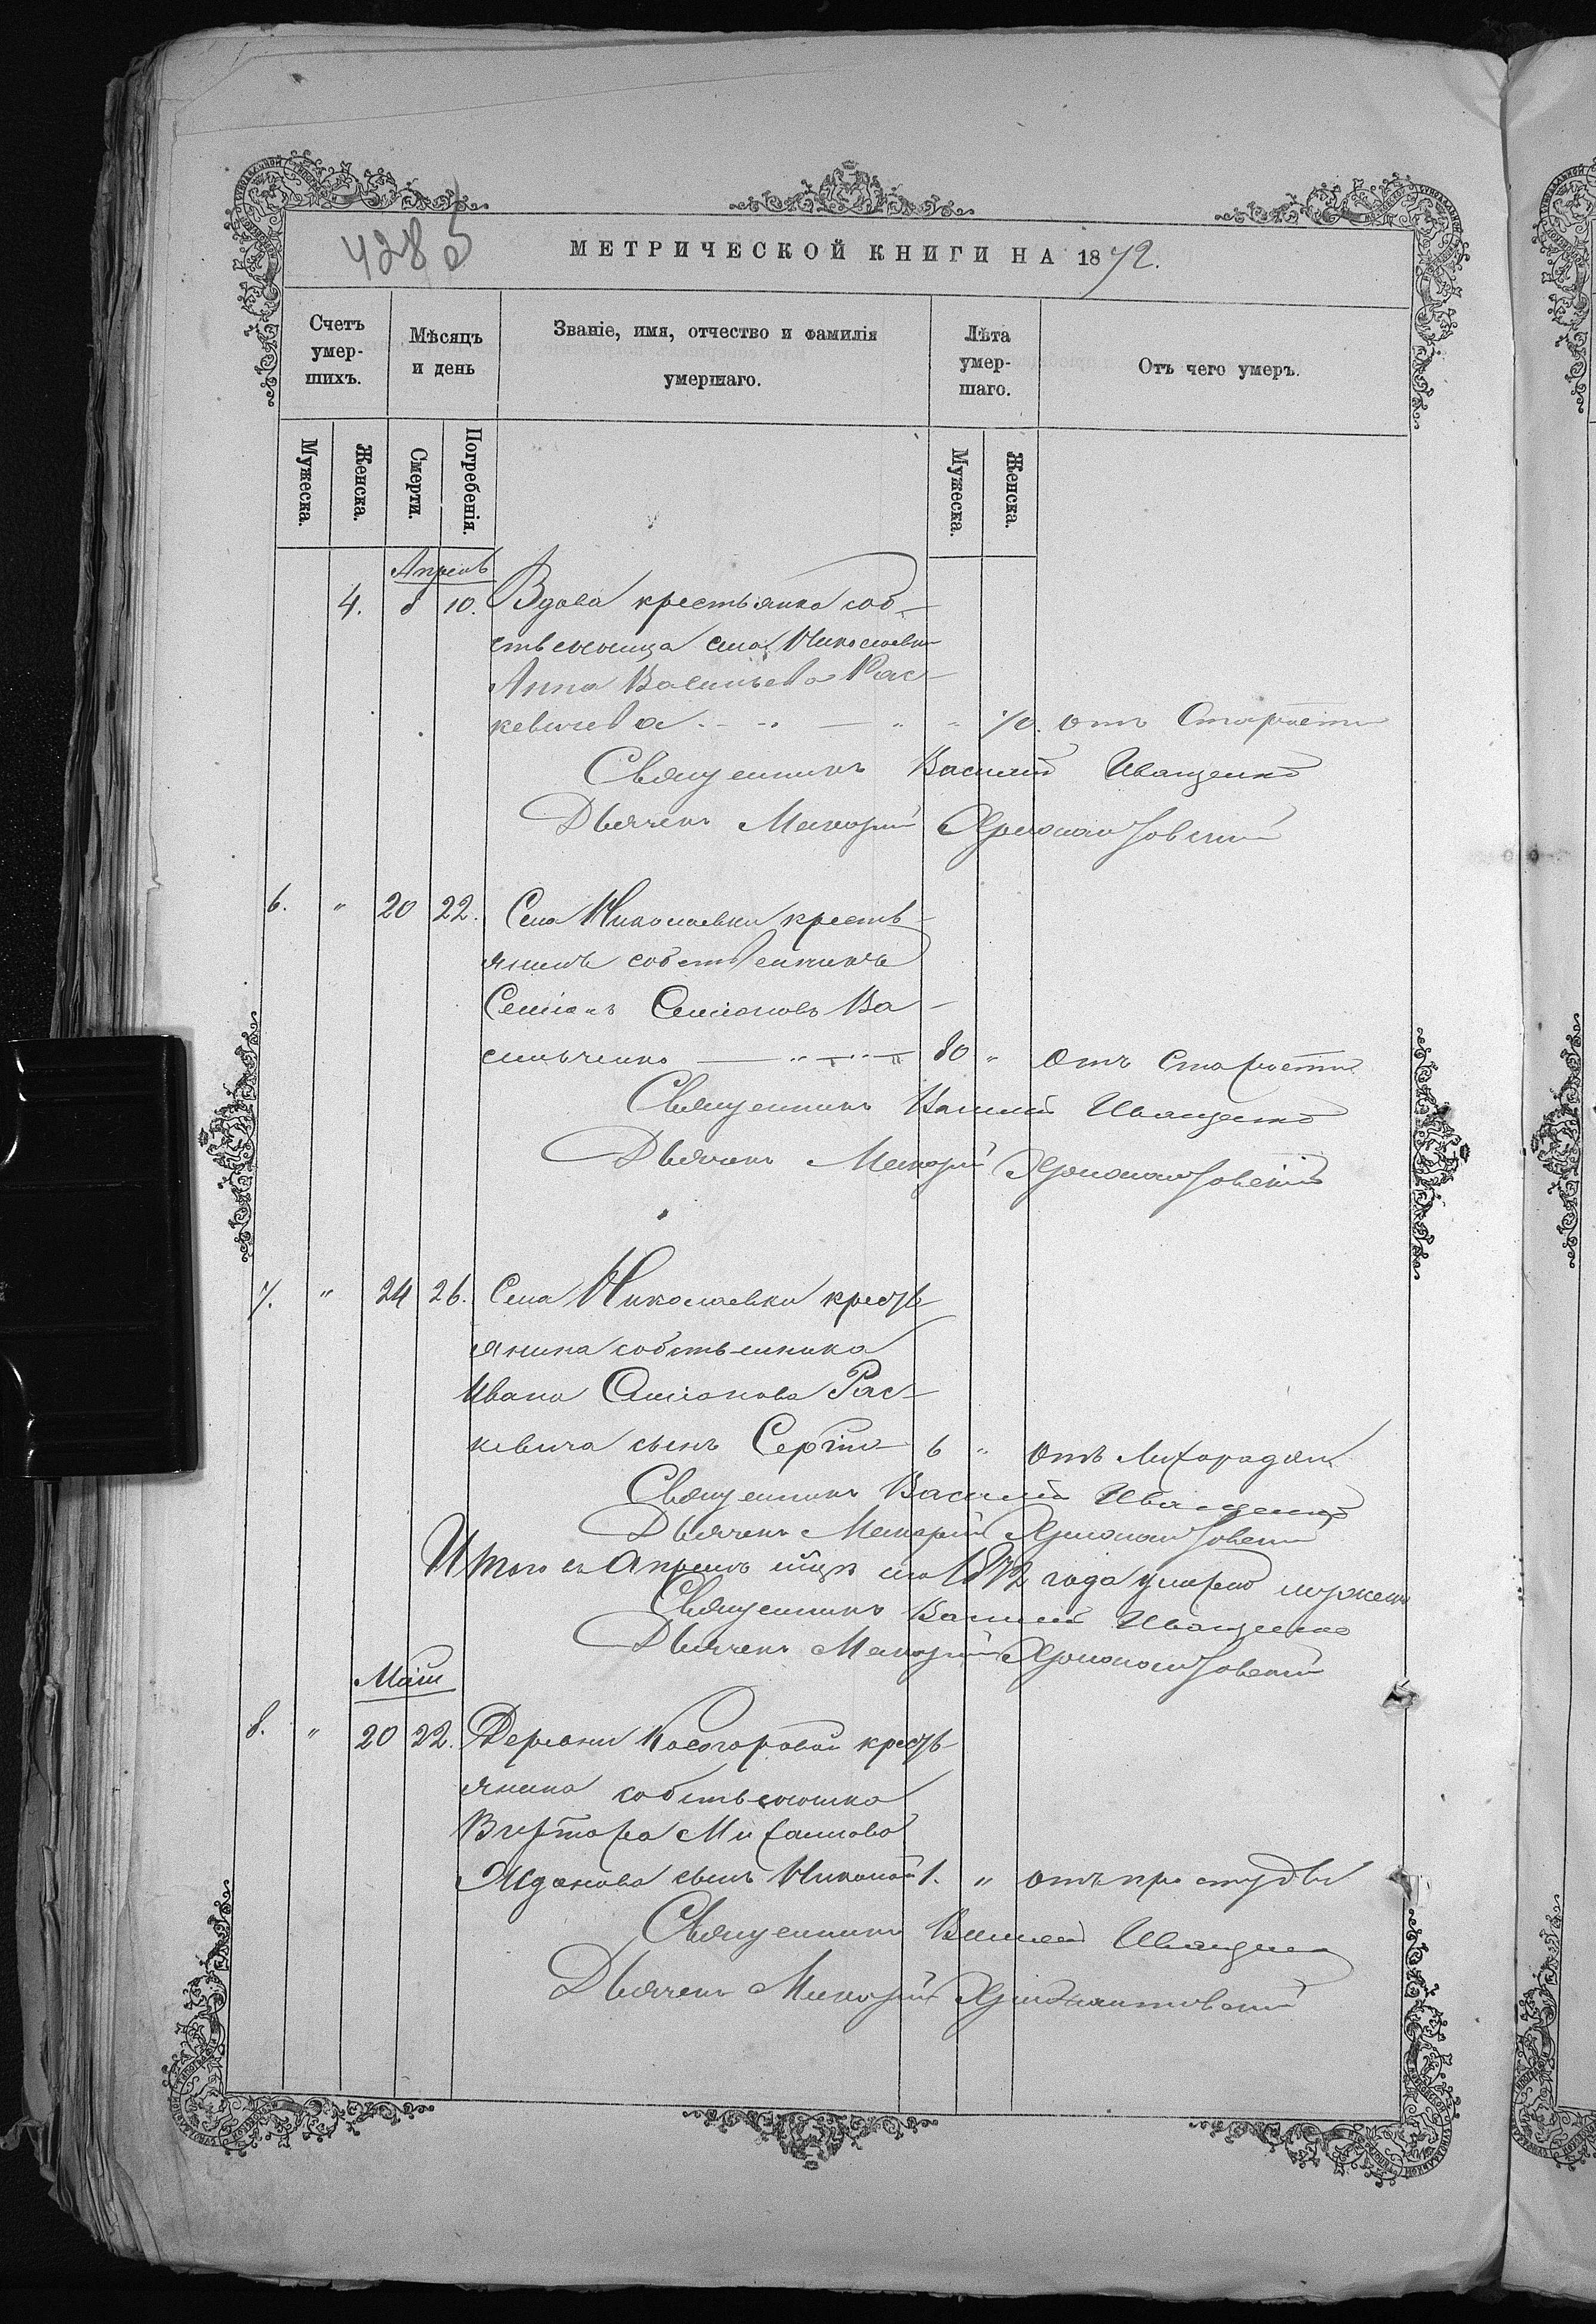 428 об
МЕТРИЧЕСКОЙ КНИГИ НА 1872.
Счетъ умер-шихъ.
Мѣсяцъ и день
Званіе, имя, отчество и фамилія умершаго.
Лѣта умер-шаго.
Отъ чего умеръ.
Мужеска.
Женска.
Смерти.
Погребенія.
Мужеска.
Женска.
Апрель
4. 8 10. Вдова крестьянка соб-
ственница села Николаевки
Анна Васильева Рас-
кевичева " 70. отъ Старости
Священникъ Василій Иващенко
Дьячекъ Макарій
6. " 20 22. Села Николаевки кресть-
янинъ собственникъ
Семіонъ Семіоновъ Ва-
сильченко 80 " отъ Старости
Священникъ Василій Иващенко
Дьячекъ Макарій
7. " 24 26. Села Николаевки кресть-
янина собственника
Ивана Семіонова Рас-
кевича сынъ Сергій 6 " отъ Лихорадки
Священникъ Василій Иващенко
Дьячекъ Макарій
Итого въ Апреле сего 1872 года умерло
Священникъ Василій Иващенко
Дьячекъ Макарій
Маій
8. " 20 22. Деревни Косогоровой кресть-
янина собственника
Виктора Михаилова
Жданова сынъ Николай 1. " отъ простуды
Священникъ Василій Иващенко
Дьячекъ Макарій